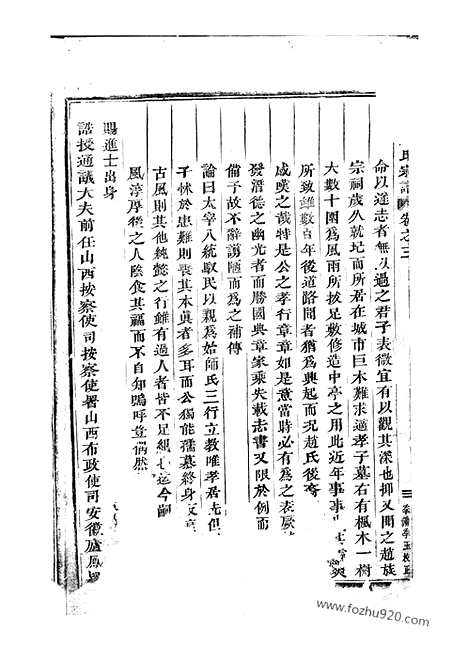 氏家譜 卷之三
命以達志者無以過之君子表微宜有以觀其深也抑又聞之趙族
宗祠歲久就圮而所居在城市巨木難求適孝子墓右有楓木一樹
大數十圍爲風雨所拔足敷修造中亭之用此近年事
所致 數百年後道路聞者猶爲興起而況趙氏後
感嘆之哉特是公之孝行章章如是意當時必有爲之表
發潛德之幽光者而勝國典章家乘失載志書又限於例而
備予故不辭謭陋而爲之補傳
論曰太宰八統馭民以親爲始師氏三行立教唯孝居先
子怵於患難則喪其本眞者多耳而公獨能孺慕終身
古風則其他純懿之行雖有過人者皆不足 迄今
風淳厚後之人陰食其福而不自知嗚呼豈偶然
賜進士出身
誥授通議大夫前任山西按察使司按察使署山西布政使司安徽廬鳳
www.fozhu920.com